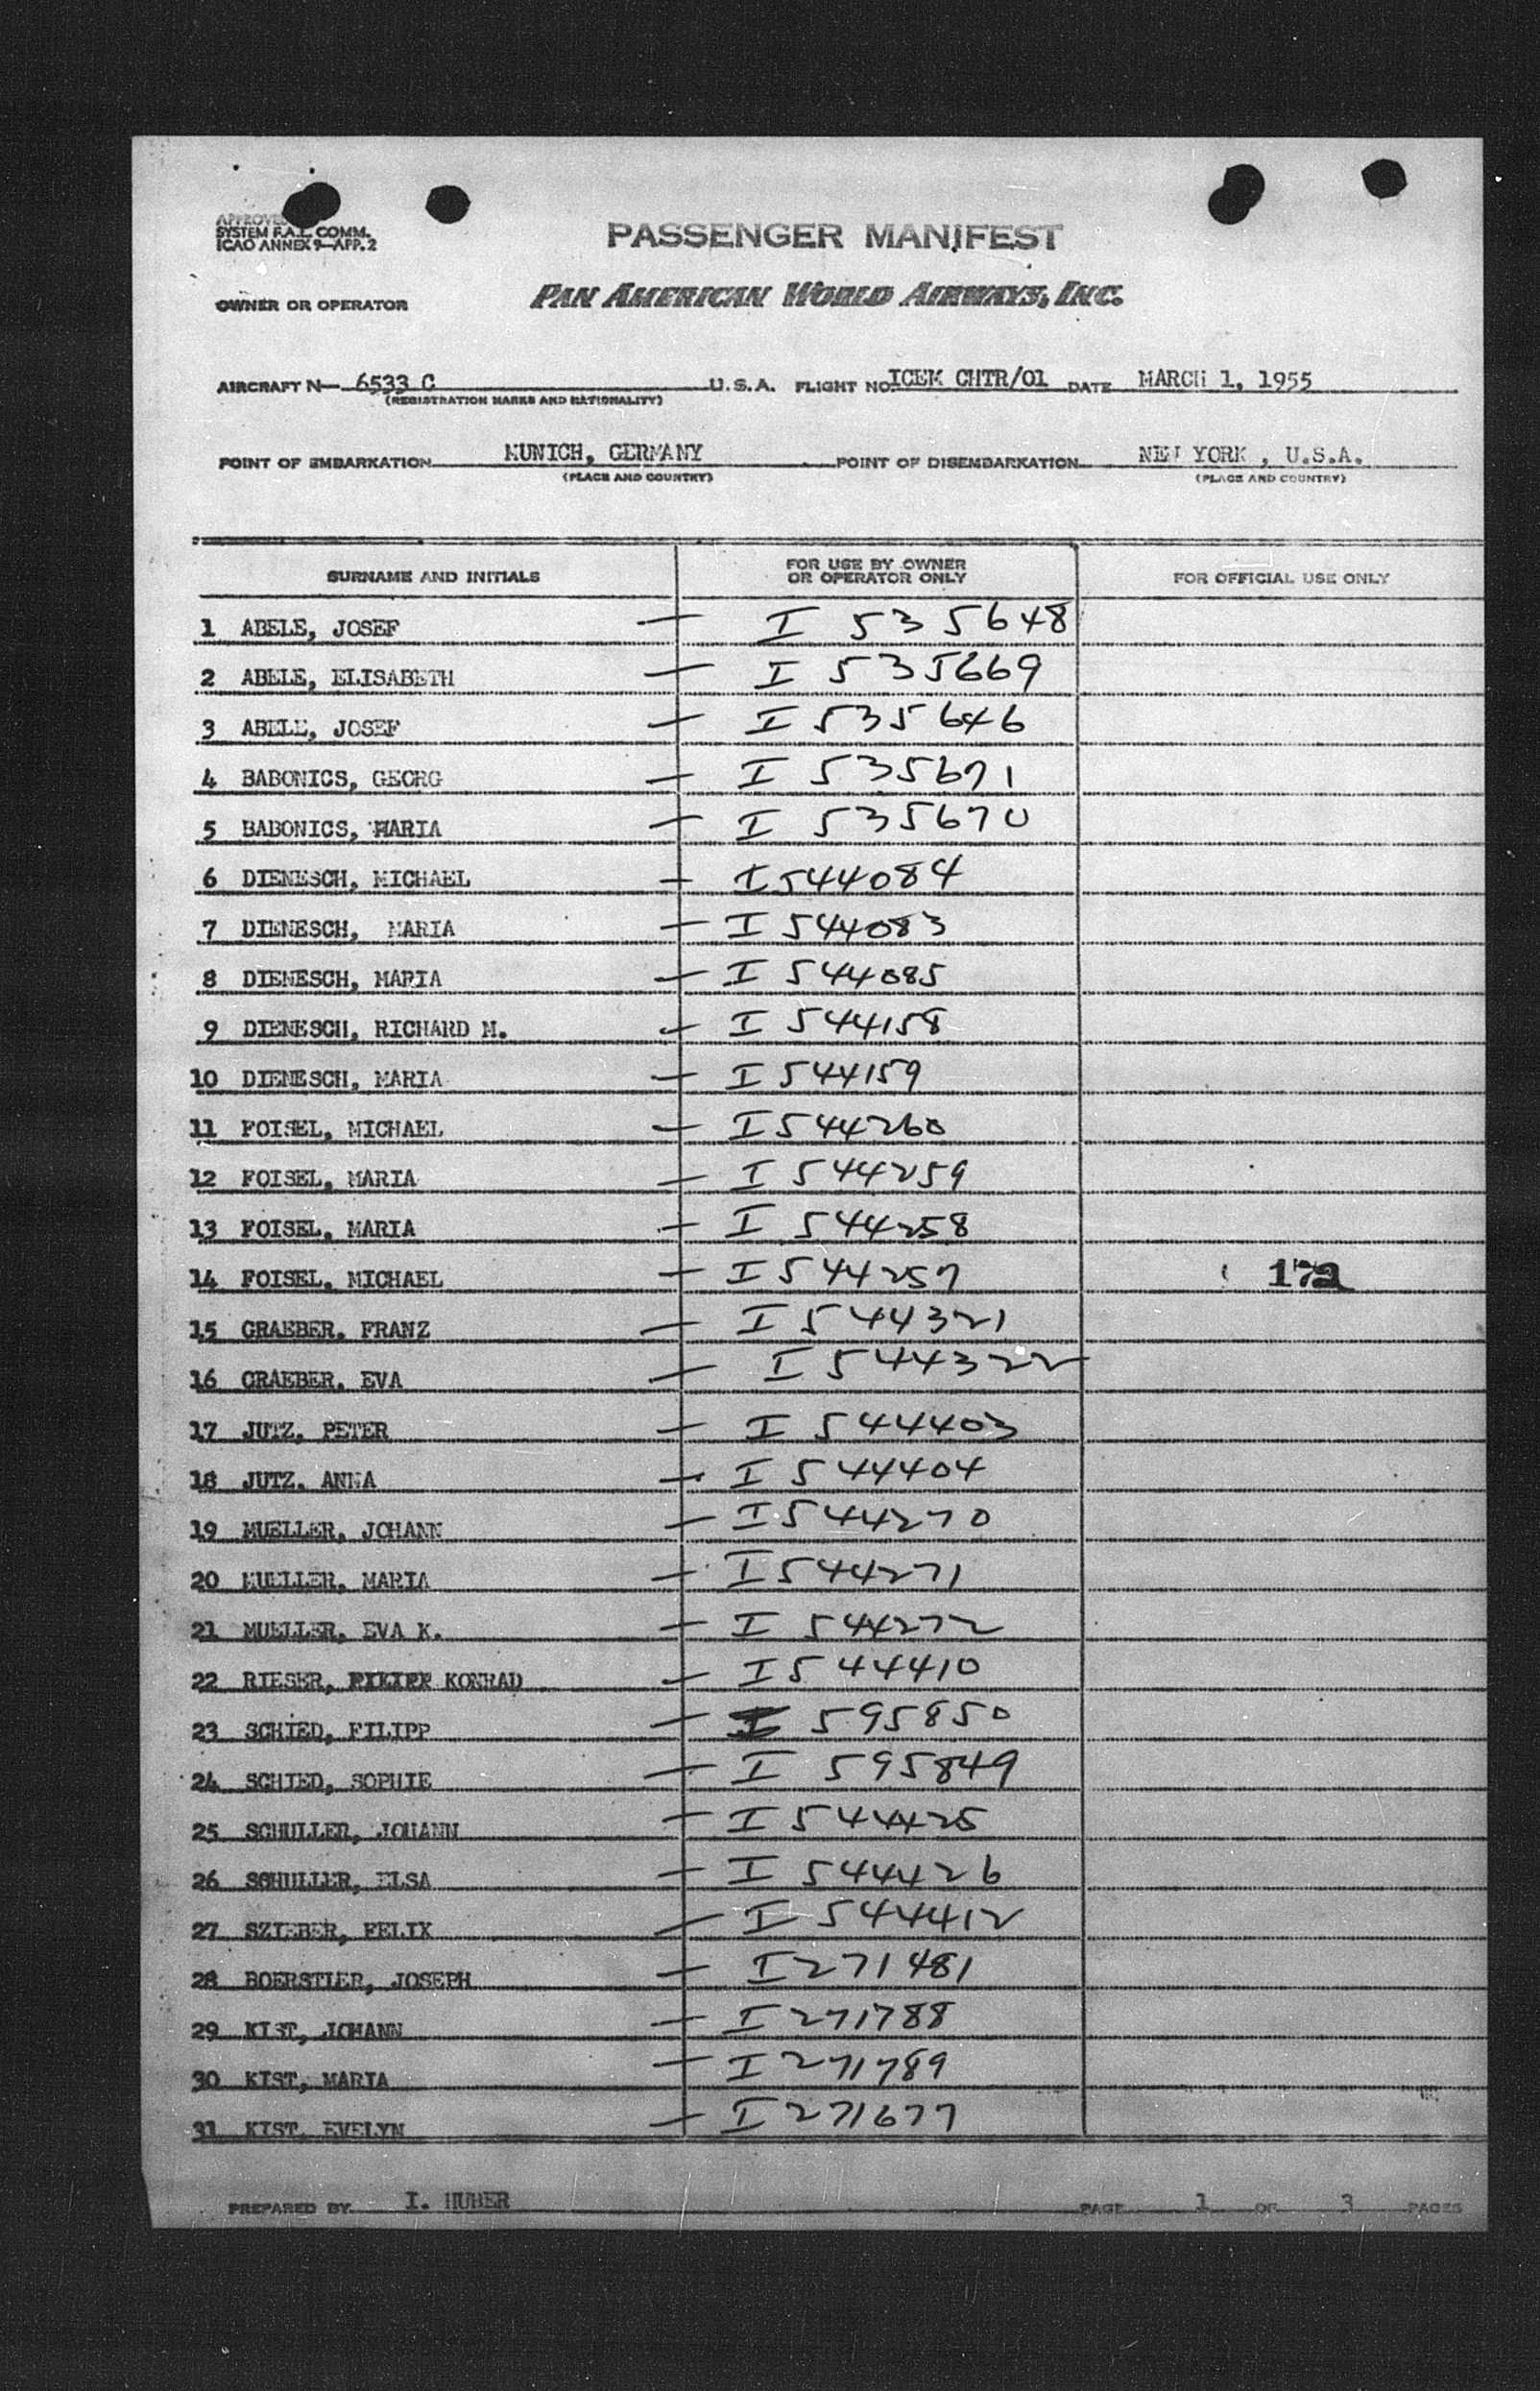 APPROVED
SYSTEM F.A.L. COMM.
ICAO ANNEX 9-APP. 2
PASSENGER MANIFEST
OWNER OR OPERATOR PAN AMERICAN WORLD AIRWAYS, INC.
AIRCRAFT N- 6533 C U.S.A. FLIGHT NO. ICEM CHTR/01 DATE MARCH 1, 1955
(REGISTRATION MARKS AND NATIONALITY)
POINT OF EMBARKATION MUNICH, GERMANY POINT OF DISEMBARKATION NEW YORK , U.S.A.
(PLACE AND COUNTRY) (PLACE AND COUNTRY)
SURNAME AND INITIALS FOR USE BY OWNER OR OPERATOR ONLY FOR OFFICIAL USE ONLY
1 ABELE, JOSEF — I 535648
2 ABELE, ELISABETH — I 535669
3 ABELE, JOSEF — I 535646
4 BABONICS, GEORG — I 535671
5 BABONICS, MARIA — I 535670
6 DIENESCH, MICHAEL — I 544084
7 DIENESCH, MARIA — I 544083
8 DIENESCH, MARIA — I 544085
9 DIENESCH, RICHARD M. — I 544158
10 DIENESCH, MARIA — I 544159
11 FOISEL, MICHAEL — I 544260
12 FOISEL, MARIA — I 544259
13 FOISEL, MARIA — I 544258
14 FOISEL, MICHAEL — I 544257 172
15 GRAEBER, FRANZ — I 544321
16 GRAEBER, EVA — I 544322
17 JUTZ, PETER — I 544403
18 JUTZ, ANNA — I 544404
19 MUELLER, JOHANN — I 544270
20 MUELLER, MARIA — I 544271
21 MUELLER, EVA K. — I 544272
22 RIESER, KONRAD — I 544410
23 SCHIED, FILIPP — I 595850
24 SCHIED, SOPHIE — I 595849
25 SCHULLER, JOHANN — I 544425
26 SCHULLER, ELSA — I 544426
27 SZIEBER, FELIX — I 544412
28 BOERSTLER, JOSEPH — I 271481
29 KIST, JOHANN — I 271788
30 KIST, MARIA — I 271789
31 KIST, EVELYN — I 271677
PREPARED BY I. HUBER PAGE 1 OF 3 PAGES